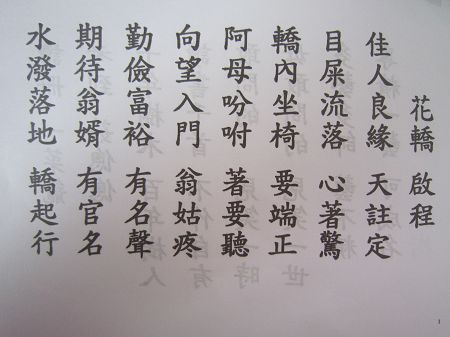 花轎 啟程
佳人良緣 天註定
目屎流落 心著驚
轎內坐椅 要端正
阿母吩咐 著要聽
向望入門 翁姑疼
勤儉富裕 有名聲
期待翁婿 有官名
水潑落地 轎起行
1